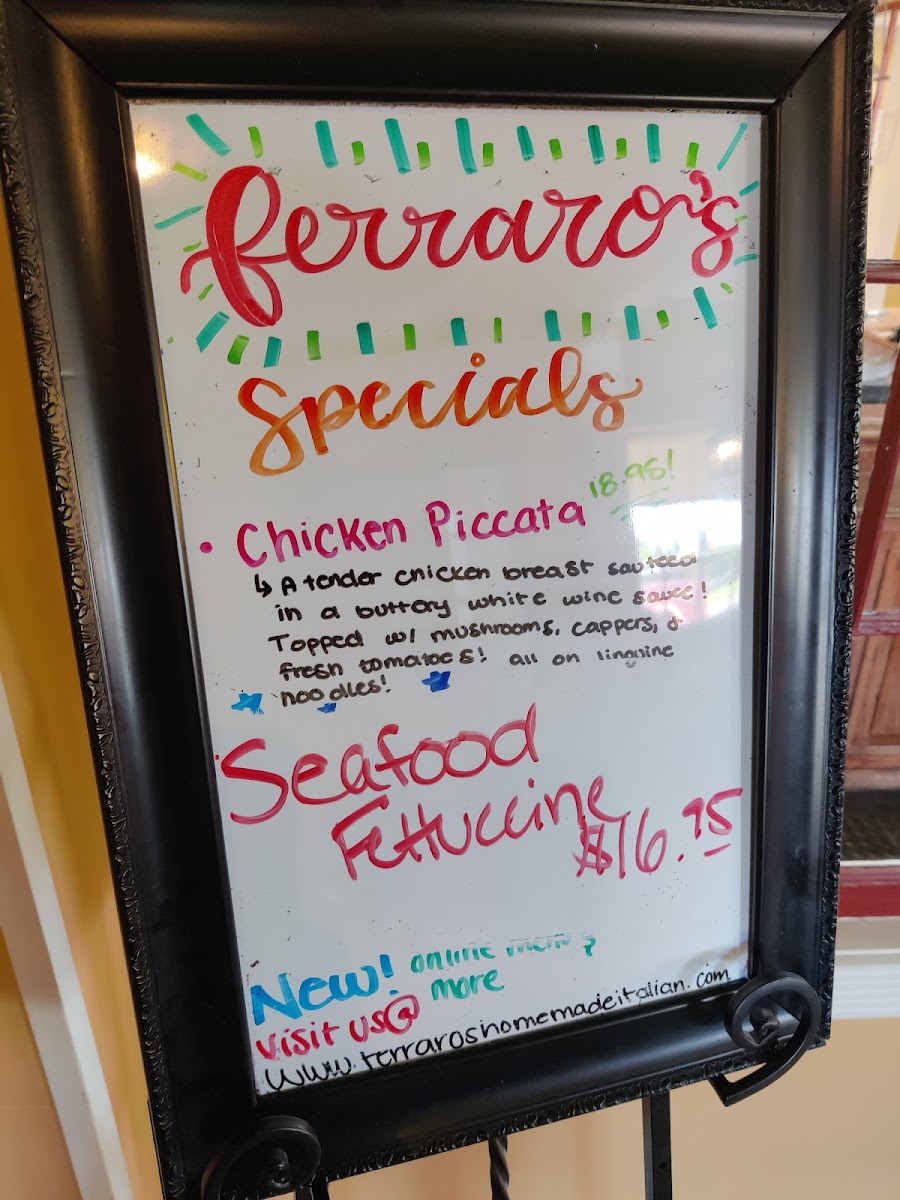 Ferraro's
Specials
18.95!
• Chicken Piccata
↳ A tender chicken breast sauteed
in a buttery white wine sauce!
Topped w/ mushrooms, cappers, &
fresh tomatoes! all on linguine
noodles!
Seafood
Fettuccine
$16.95
New! online menu &
more
visit us@
www.ferraroshomemadeitalian.com